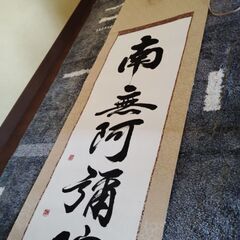 南無阿彌